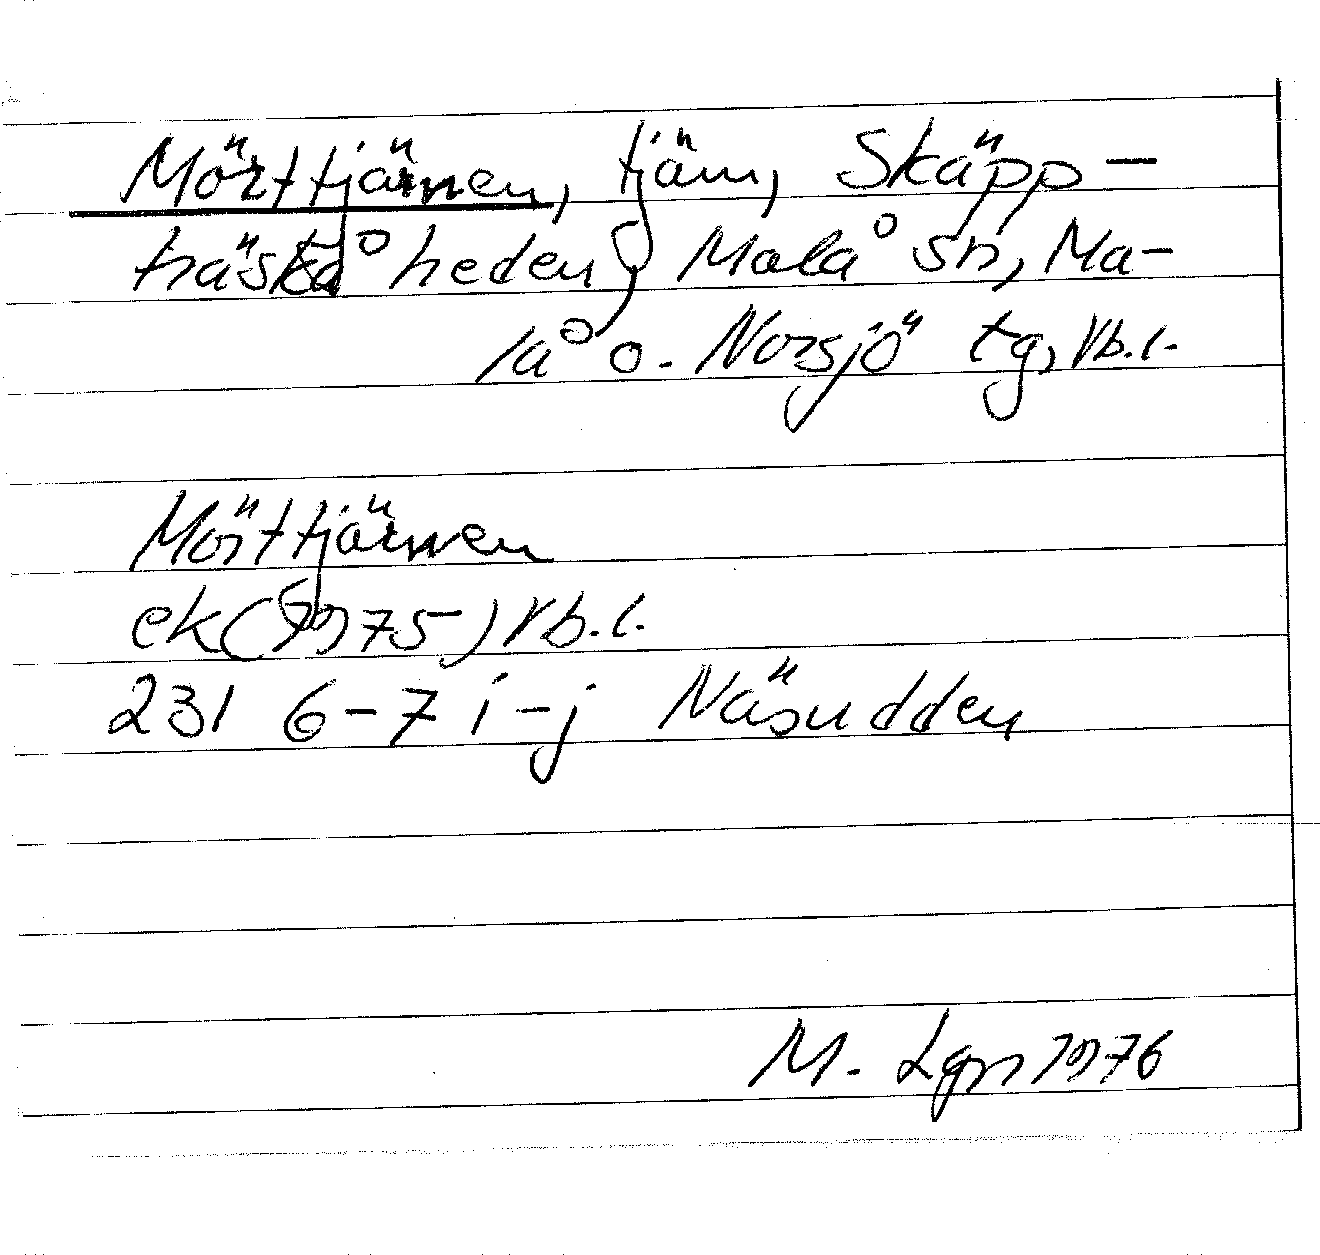 Mörttjärnen, tjärn, Skäpp-
träskåheden, Malå sn, Ma-
lå o. Norsjö tg, Vb.l.
Mörttjärnen
ek(1975) Vb.l.
23I 6-7 i-j Näsudden
M. Lgn 1976